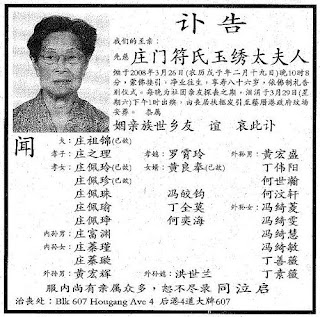 讣告
我们的至亲:
先慈 庄门符氏玉绣太夫人
恸于2008年3月26日(农历戊子年二月十九日)晚10时8
分,蒙佛接引,净业往生,享寿八十六岁,依佛制礼告
别仪式。每晚为社团亲友探丧之期。
姻亲族世乡友 谊 哀此讣
闻
夫:庄祖锦(已故)
孝子:庄之理 孝媳:罗宵玲 外孙男:黄宏盛
孝女:庄佩玲(已故) 女婿:黄良奉(已故) 丁业伟
庄佩珍(已故) 何世瀚
庄佩珠 冯皎钧 何妏轩
庄佩瑜 丁全莫 外孙女:冯绮菱
庄佩琤 何奕海 冯绮雯
内孙男:庄富渊 冯绮慧
内孙女:庄蓁瑾 冯绮敏
庄蓁璇 丁善薇
外孙男:黄宏辉 外孙媳:洪世兰 丁素薇
服内尚有亲属众多,恕不尽录 同泣启
治丧处:Blk 607 Hougang Ave 4 后港4道大牌607